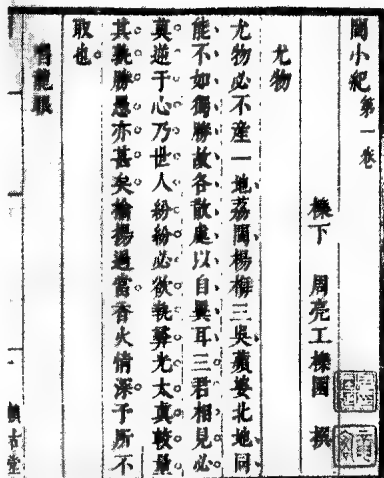 閩小紀第一卷
櫟下 周亮工櫟園 撰
尤物
尤物必不產一地荔閩楊梅三吳蘋婆北地同
能不如獨勝故各散處以自異耳三君相見必
莫逆于心乃世人紛紛必欲執彝光太真較量
其孰勝愚亦甚矣揄揚過當香火情深予所不
取也
龍眼